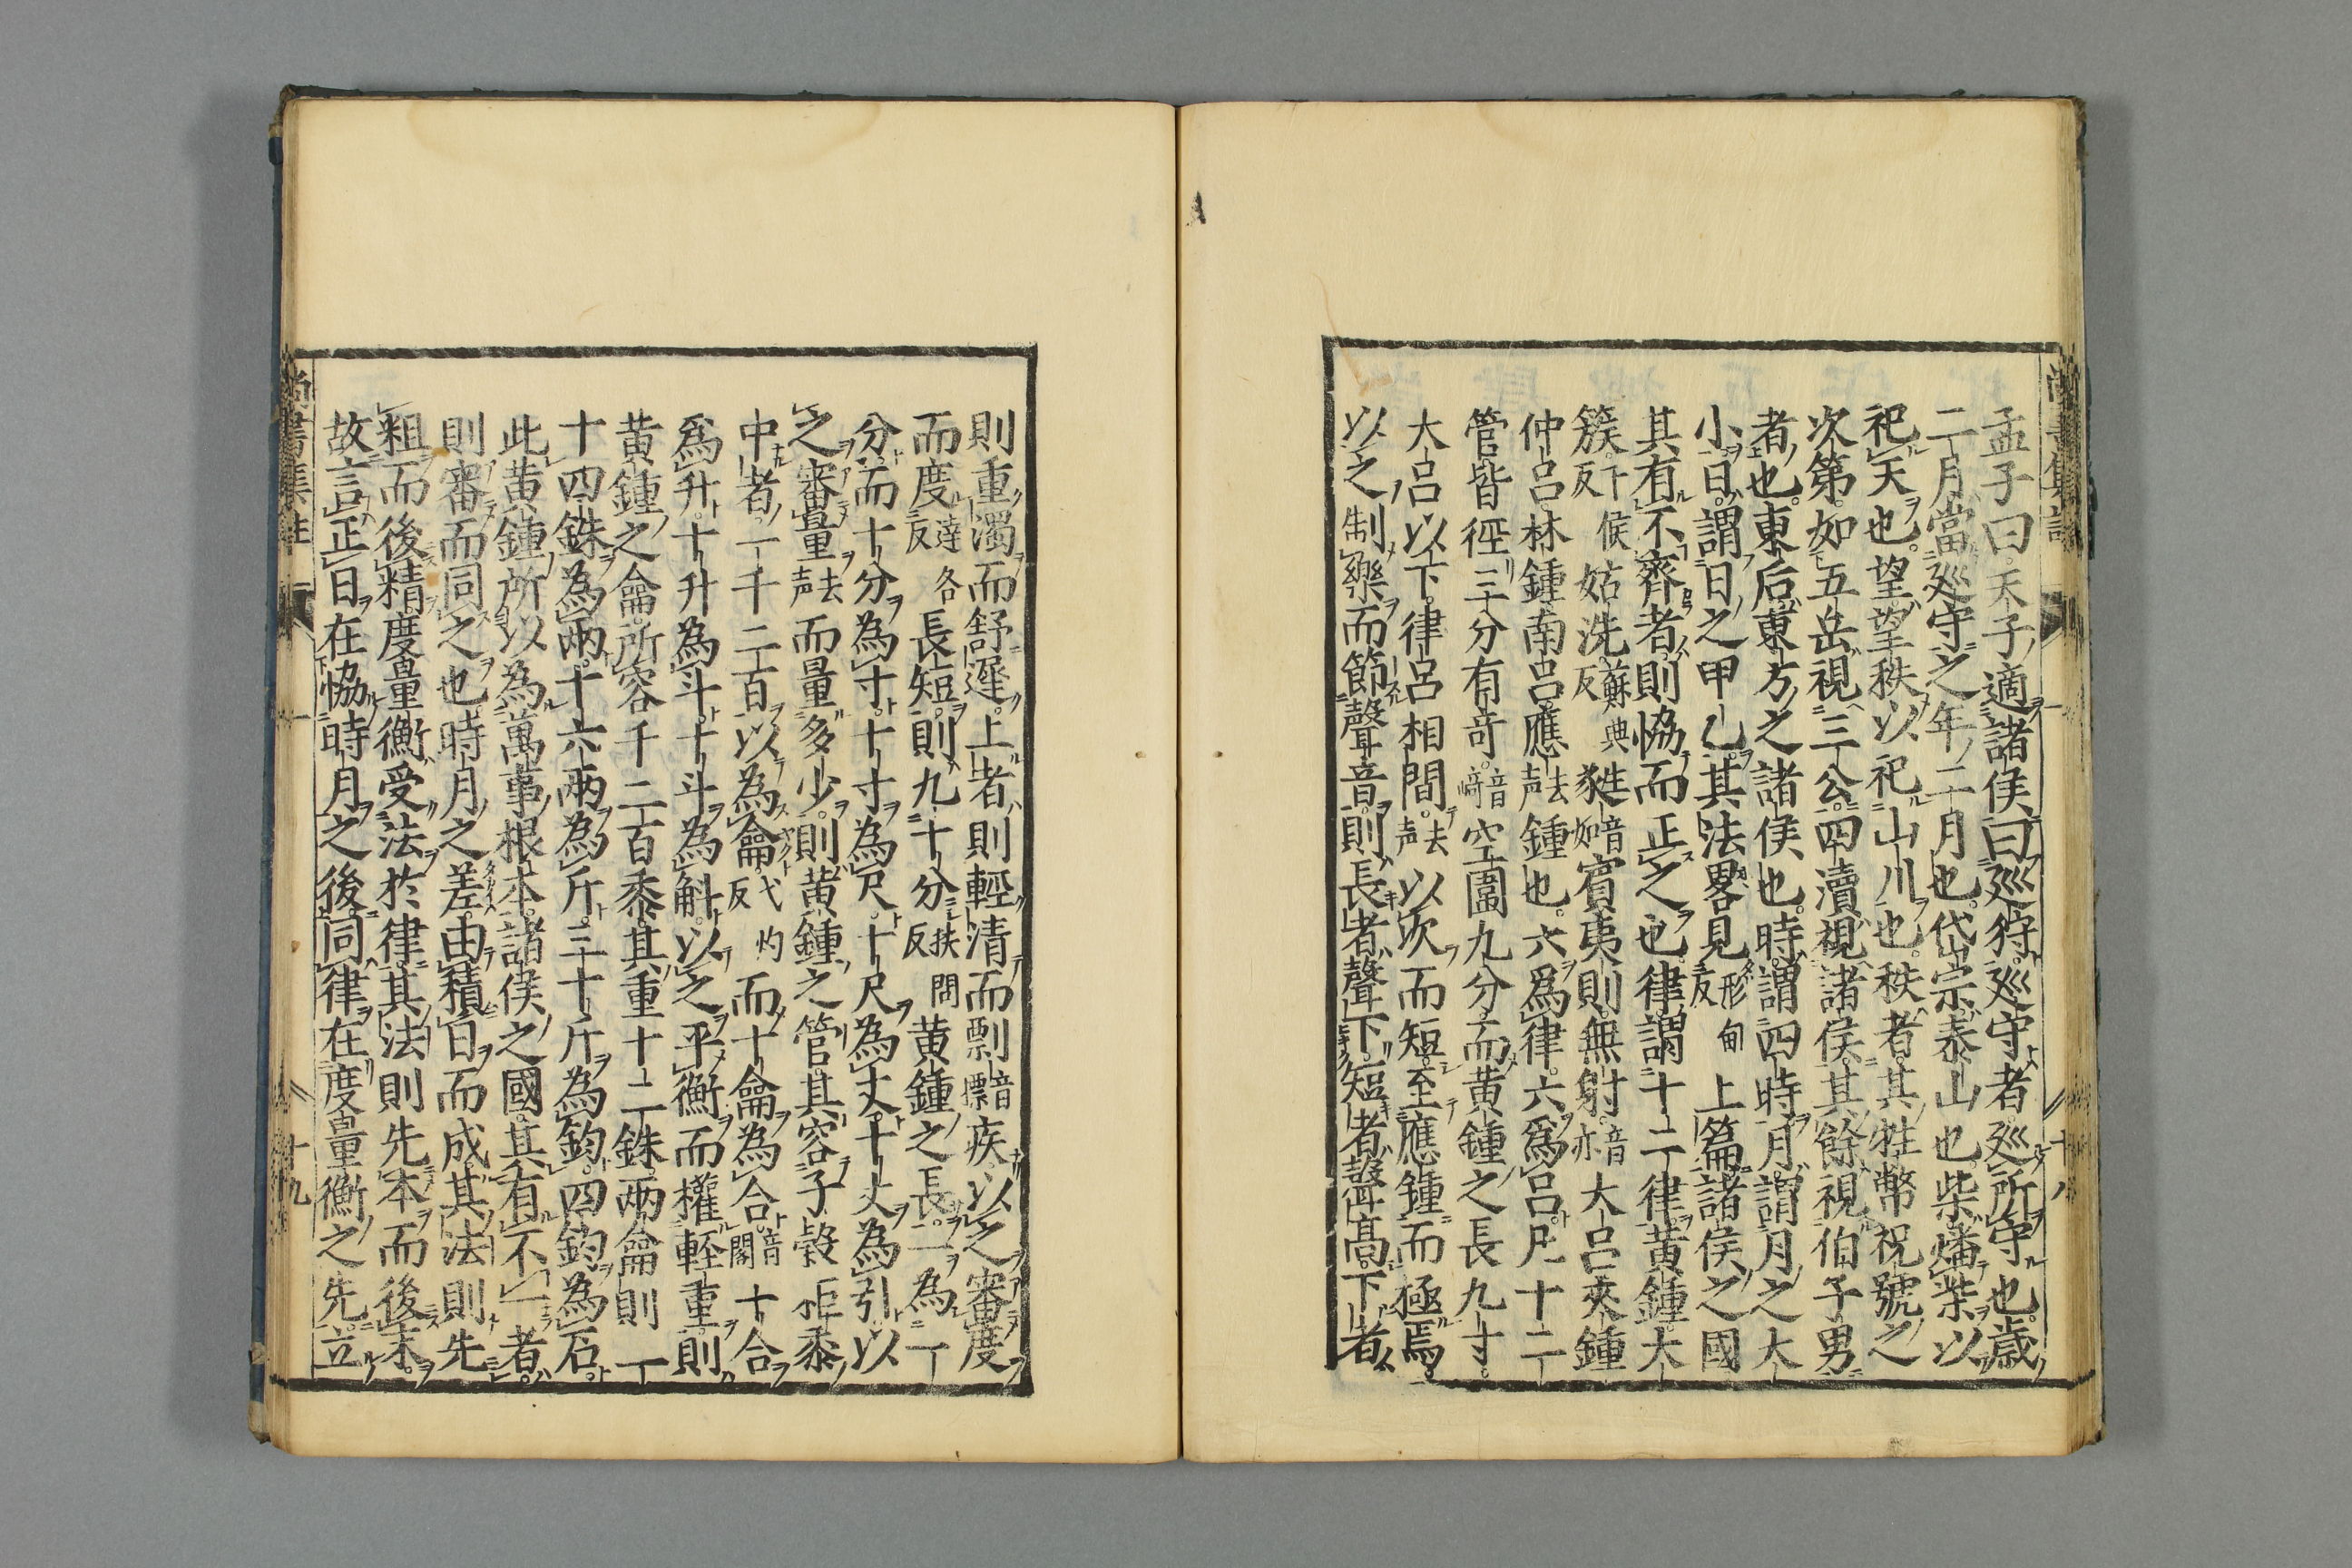 孟子曰天子適諸侯曰廵狩廵守者廵所守也歲
二月當廵守之年二月也岱宗泰山也柴燔柴以
祀天也望望秩以祀山川也秩者其牲幣祝號之
次第如五岳視三公四瀆視諸侯其餘視伯子男
者也東后東方之諸侯也時謂四時月謂月之大
小日謂日之甲乙其法畧見形甸反上篇諸侯之國
其有不齊者則協而正之也律謂十二律黃鍾大
簇下候反姑洗蘇典反㽔音如賓夷則無射音亦大呂夾鍾
仲呂林鍾南呂應去声鍾也六爲律六爲呂凡十二
管皆徑三分有奇音㟢空圍九分而黄鍾之長九寸
大呂以下律呂相間去声以次而短至應鍾而極焉
以之制樂而節聲音則長者聲下短者聲高下者
則重濁而舒遲上者則輕清而剽音慓疾以之審度
而度達各反長短則九十分扶問反黄鍾之長一為一
分而十分為寸十寸為尺十尺為丈十丈為引以
之審量去声而量多少則黄鍾之管其容子穀秬黍
中者一千二百以為龠弋灼反而十龠為合音閣十合
爲升十升為斗十斗為斛以之平衡而權輕重則
黄鍾之龠所容千二百黍其重十二銖兩龠則二
十四銖為兩十六兩為斤三十斤為鈞四鈞為石
此黄鍾所以為萬事根本諸侯之國其有不一者
則審而同之也時月之差由積日而成其法則先
粗而後精度量衡受法於律其法則先本而後末
故言正日在協時月之後同律在度量衡之先立
尚書集註
十八
尚書集註 一
十九